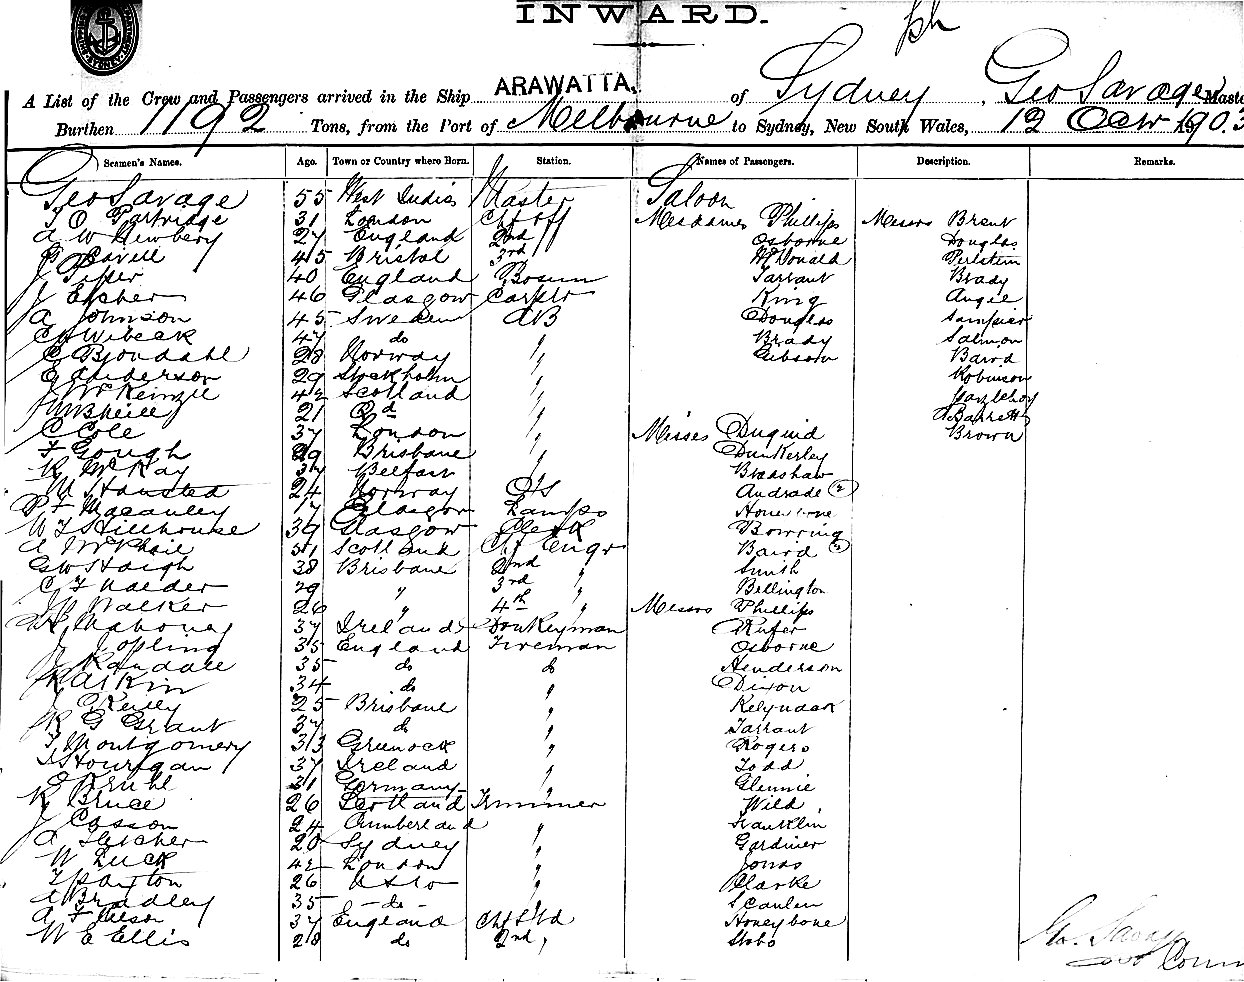 INWARD.
ARAWATTA.
A List of the Crew and Passengers arrived in the Ship ARAWATTA of Sydney, Geo Savage Maste
Burthen 1192 Tons, from the Port of Melbourne to Sydney, New South Wales, 12 Octr 1903
Seamen's Names. Age. Town or Country where Born. Station. Names of Passengers. Description. Remarks.
Geo Savage 55 West Indies Master Saloon
T O Partridge 31 London Chf Off Mesdames Phillips Messrs Brent
A W Newbery 27 England 2nd Osborne Douglas
Savell 45 Bristol 3rd McDonald Perlstein
J Piper 40 England Bosun Tarrant Brady
J Escher 46 Glasgow Carptr King Angie
A Johnson 45 Sweden AB Douglas Sampier
C Wibeck 47 do " Brady Salmon
C Bjondahl 28 Norway " Gibson Baird
E Anderson 29 Stockholm " Robinson
J McKenzie 42 Scotland "
21 " Barrett
C Cole 37 London " Misses Duguid Brown
F Gough 29 Brisbane " Dunkerley
R McKay 37 Belfast " Bradshaw
M Hansted 24 Norway OS Andrade (2)
P F Macauley 17 Glasgow Lamps Honeybone
W T S Hillhouse 39 Glasgow Clerk Bowring
A McPhail 51 Scotland Chf Engr Baird (2)
G W Haigh 38 Brisbane 2nd Smith
C F Naeder 29 " 3rd " Bellington
J P Walker 26 " 4th " Messrs Phillips
Mahoney 37 Ireland Donkeyman Rufer
J Jopling 35 England Fireman Osborne
J Randall 35 do do Henderson
Larkin 34 do " Dixon
J Reilly 25 Brisbane " Kelynack
R G Grant 37 do " Tarrant
T Montgomery 33 Greenock " Rogers
T Hourigan 37 Ireland " Todd
Kruhl 31 Germany " Glennie
R Bruce 26 Scotland Trimmer Wild
J Casson 24 Cumberland " Franklin
A Fletcher 20 Sydney " Gardiner
W Luck 42 London " Jonas
T Paxton 26 " Clarke
A Bradley 35 do " Scanlen
A F Nelson 37 England Chf Std Honeybone
W E Ellis 28 do 2nd " Stobo
Geo. Savage